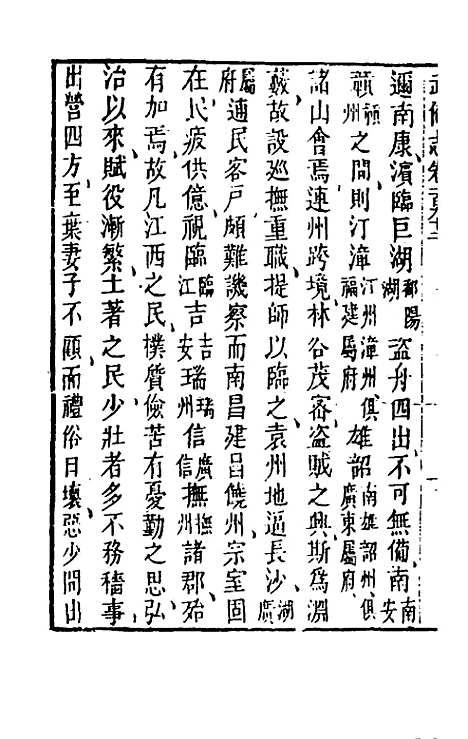 武備志卷一百九十二
邇南康濱臨巨湖鄱陽湖盜舟四出不可無備南南安
贛贛州之間則汀漳汀州漳州俱福建屬府雄韶南雄韶州俱廣東屬府
諸山會焉連州跨境林谷茂密盜賊之興斯爲淵
藪故設巡撫重職提師以臨之袁州地逼長沙湖廣
屬府逋民客戶頗難譏察而南昌建昌饒州宗室固
在民疲供億視臨臨江吉吉安瑞瑞州信廣信撫撫州諸郡殆
有加焉故凡江西之民樸質儉苦有憂勤之思弘
治以來賦役漸繁土著之民少壯者多不務穡事
出營四方至棄妻子不顧而禮俗日壞惡少間出